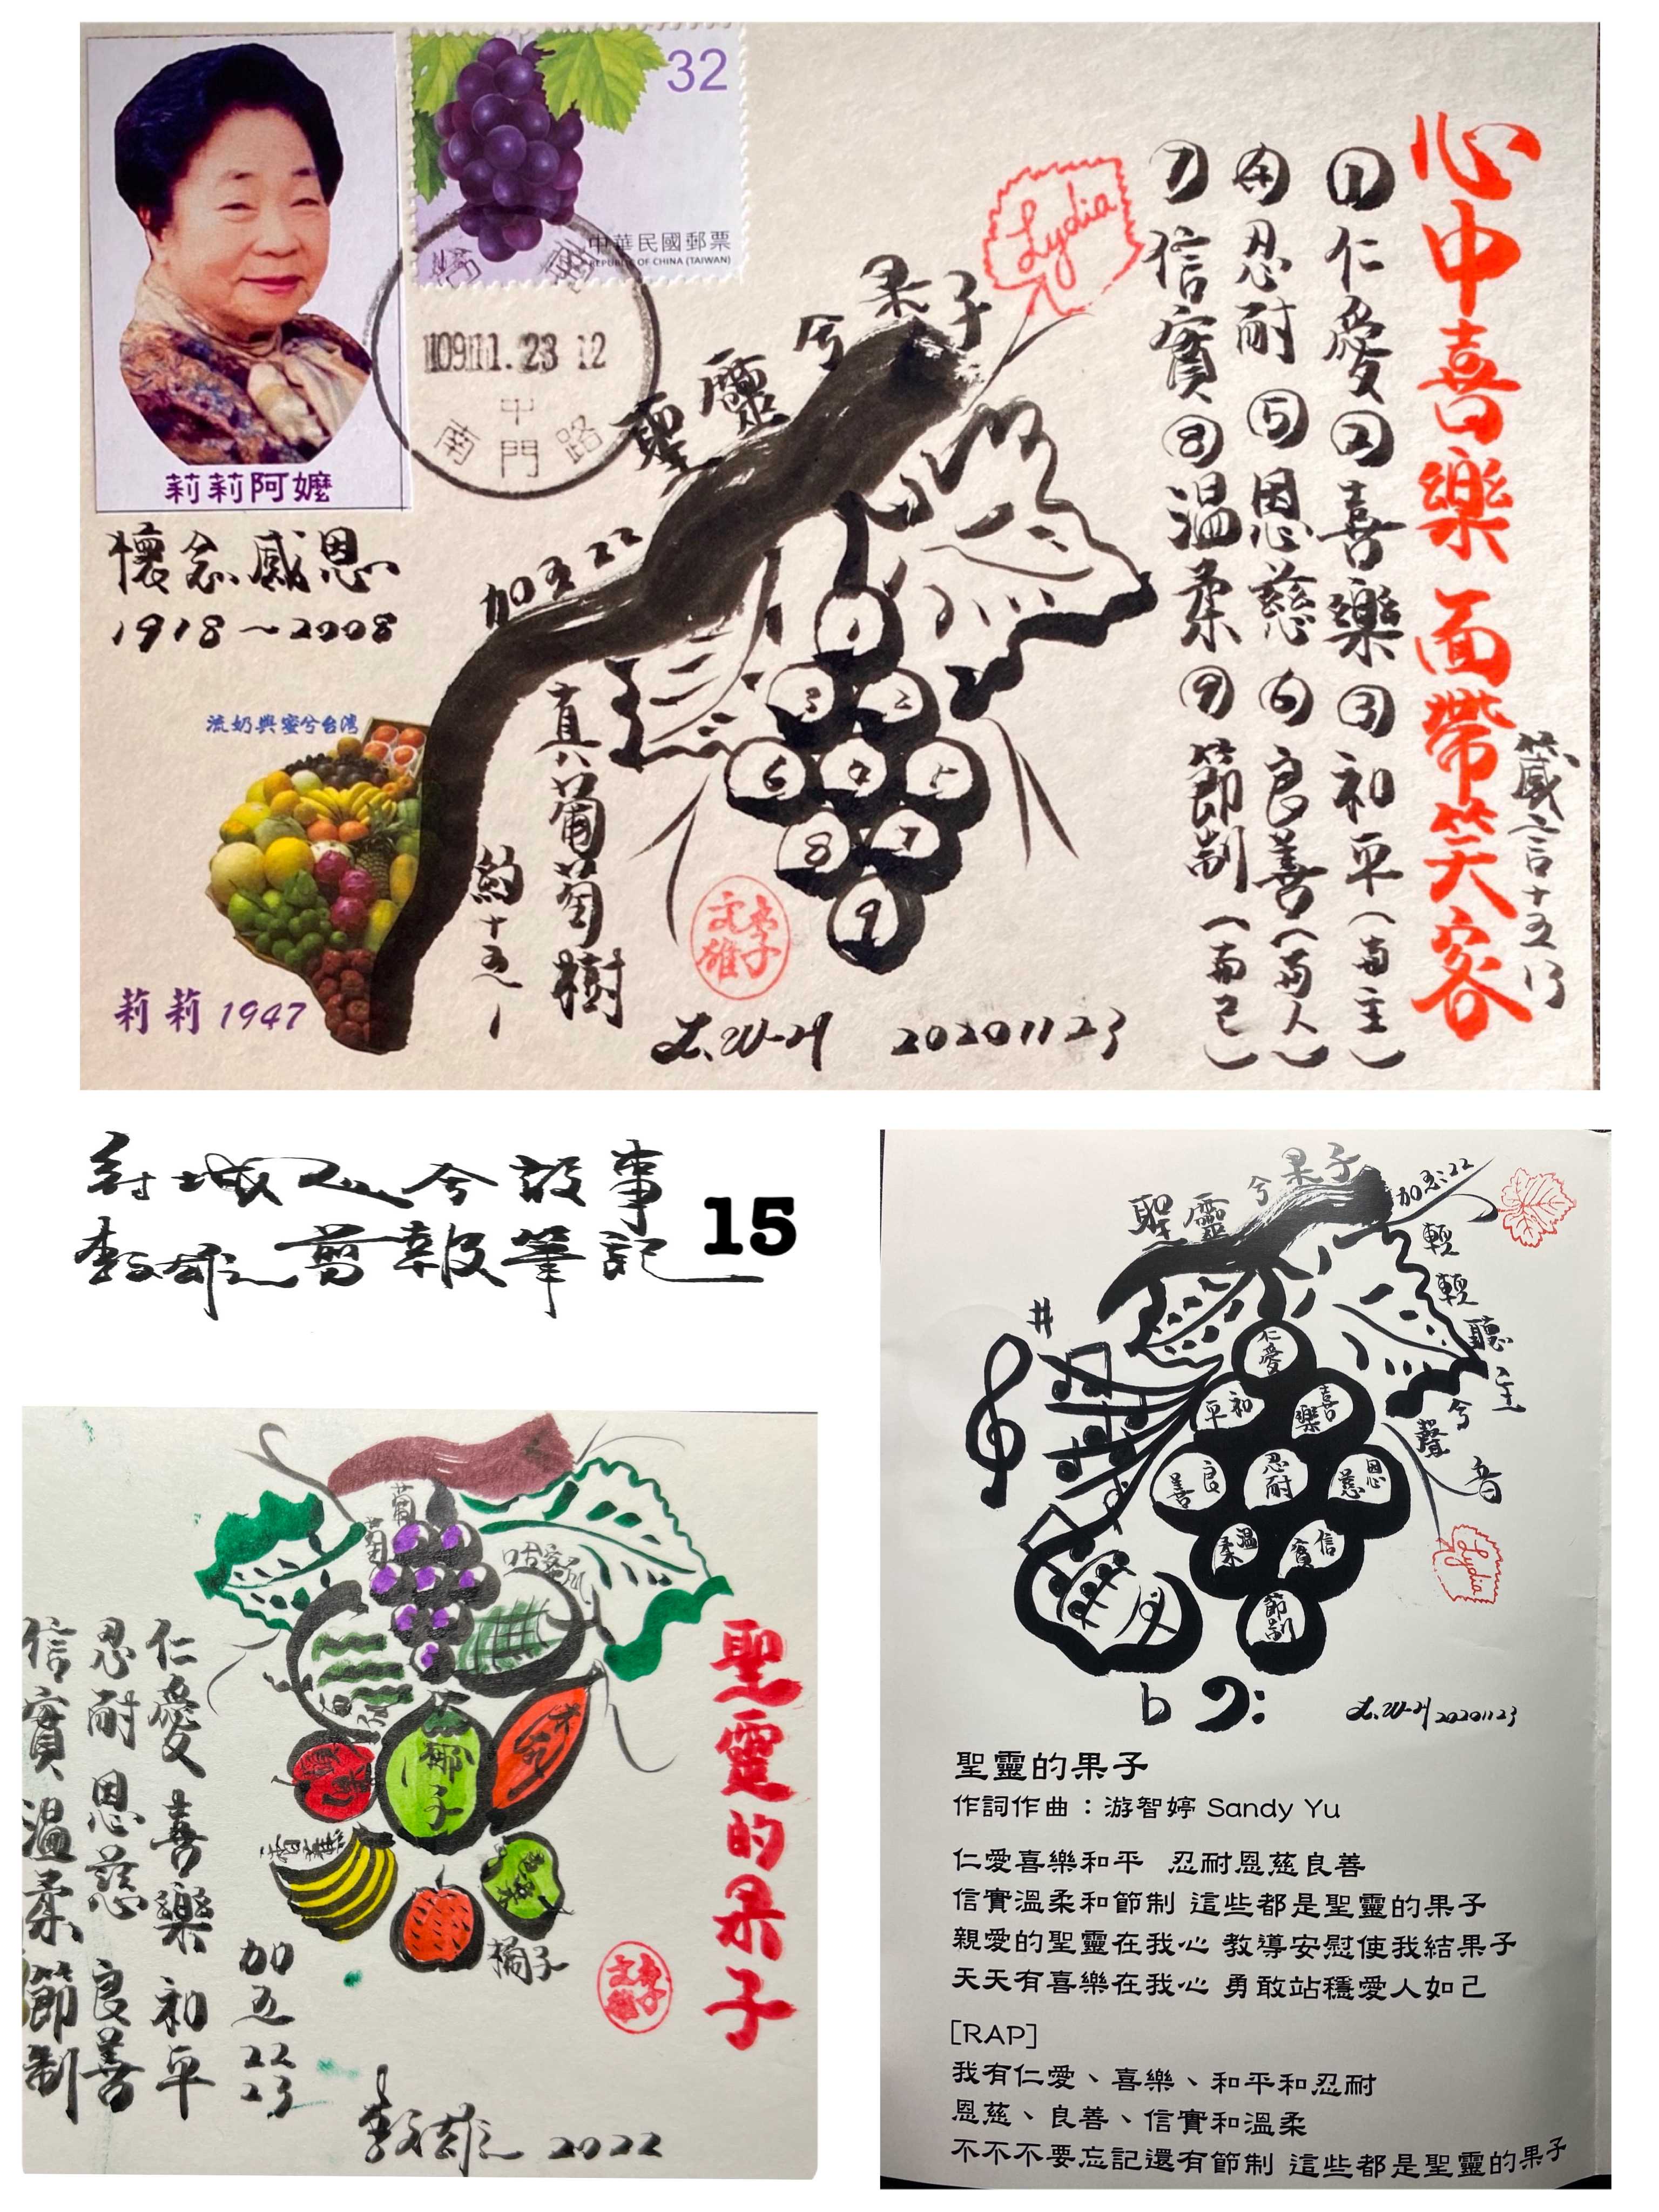 32
中華民國郵票
REPUBLIC OF CHINA (TAIWAN)
109.11.23 12
中
南門路
莉莉阿嬤
懷念感恩
1918～2008
流奶與蜜兮台灣
莉莉 1947
聖靈兮果子
加五22
Lydia
真葡萄樹
約十五1
1
3 2
6 5
8 7
9
李文雄
20201123
心中喜樂面帶笑容
箴言十五13
①仁愛②喜樂③和平(向主)
④忍耐⑤恩慈⑥良善(向人)
⑦信實⑧溫柔⑨節制(向己)
府城人兮故事
李文雄剪報筆記
15
聖靈的果子
葡萄
椰子
木瓜
橘子
仁愛 喜樂 和平
忍耐 恩慈 良善
信實 溫柔 節制
加五
22
23
李文雄 2022
聖靈兮果子
加五:22
輕輕聽主兮聲音
Lydia
仁愛
和平 喜樂
良善 忍耐 恩慈
溫柔 信實
節制
20201123
聖靈的果子
作詞作曲：游智婷 Sandy Yu
仁愛喜樂和平 忍耐恩慈良善
信實溫柔和節制 這些都是聖靈的果子
親愛的聖靈在我心 教導安慰使我結果子
天天有喜樂在我心 勇敢站穩愛人如己
[RAP]
我有仁愛、喜樂、和平和忍耐
恩慈、良善、信實和溫柔
不不不要忘記還有節制 這些都是聖靈的果子